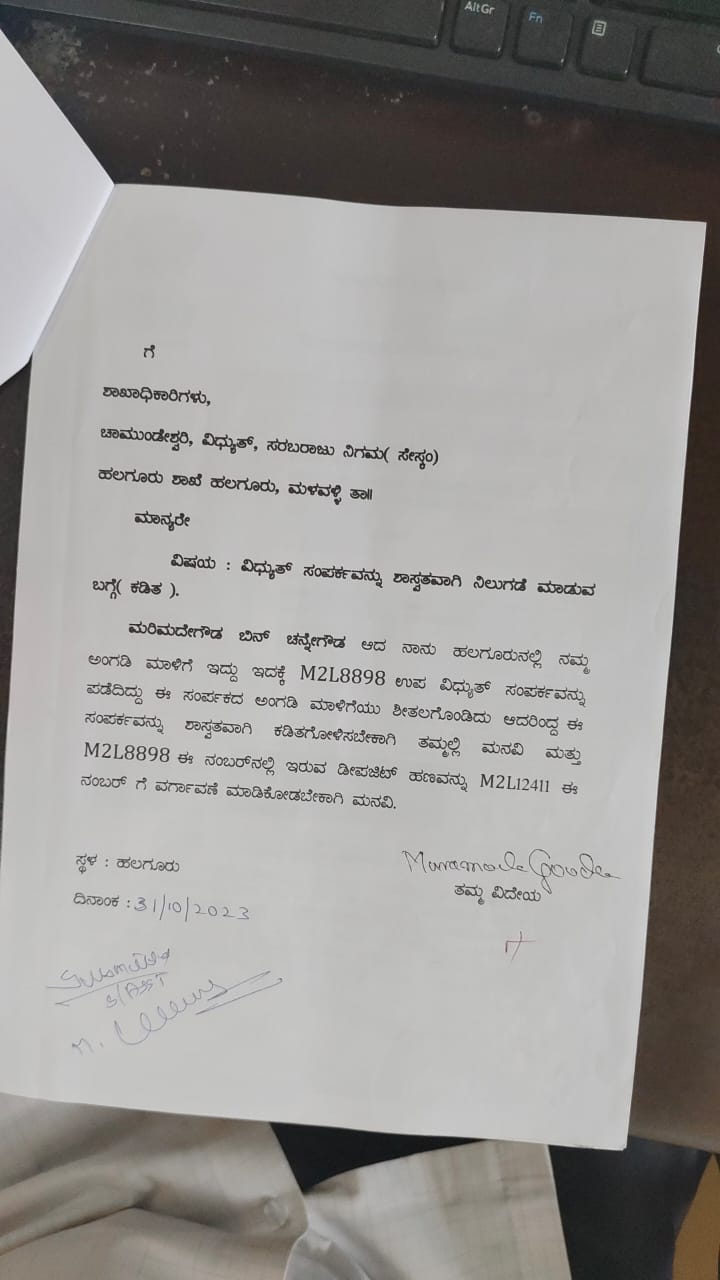 AltGr
Fn
ಗೆ
ಶಾಖಾಧಿಕಾರಿಗಳು,
ಚಾಮುಂಡೇಶ್ವರಿ, ವಿಧ್ಯುತ್, ಸರಬರಾಜು ನಿಗಮ( ಸೇಸ್ಕಂ)
ಹಲಗೂರು ಶಾಖೆ ಹಲಗೂರು, ಮಳವಳ್ಳಿ ತಾ॥
ಮಾನ್ಯರೇ
ವಿಷಯ : ವಿಧ್ಯುತ್ ಸಂಪರ್ಕವನ್ನು ಶಾಸ್ವತವಾಗಿ ನಿಲುಗಡೆ ಮಾಡುವ
ಬಗ್ಗೆ( ಕಡಿತ ).
ಮರಿಮದೇಗೌಡ ಬಿನ್ ಚನ್ನೇಗೌಡ ಆದ ನಾನು ಹಲಗೂರುನಲ್ಲಿ ನಮ್ಮ
ಅಂಗಡಿ ಮಾಳಿಗೆ ಇದ್ದು ಇದಕ್ಕೆ M2L8898 ಉಪ ವಿಧ್ಯುತ್ ಸಂಪರ್ಕವನ್ನು
ಪಡೆದಿದ್ದು ಈ ಸಂರ್ಪಕದ ಅಂಗಡಿ ಮಾಳಿಗೆಯು ಶೀತಲಗೊಂಡಿದು ಆದರಿಂದ್ದ ಈ
ಸಂಪರ್ಕವನ್ನು ಶಾಸ್ವತವಾಗಿ ಕಡಿತಗೋಳಿಸಬೇಕಾಗಿ ತಮ್ಮಲ್ಲಿ ಮನವಿ ಮತ್ತು
M2L8898 ಈ ನಂಬರ್‌ನಲ್ಲಿ ಇರುವ ಡೀಪಜಿಟ್ ಹಣವನ್ನು M2L12411 ಈ
ನಂಬರ್ ಗೆ ವರ್ಗಾವಣೆ ಮಾಡಿಕೋಡಬೇಕಾಗಿ ಮನವಿ.
ಸ್ಥಳ : ಹಲಗೂರು
ತಮ್ಮ ವಿದೇಯ
ದಿನಾಂಕ : 31/10/2023